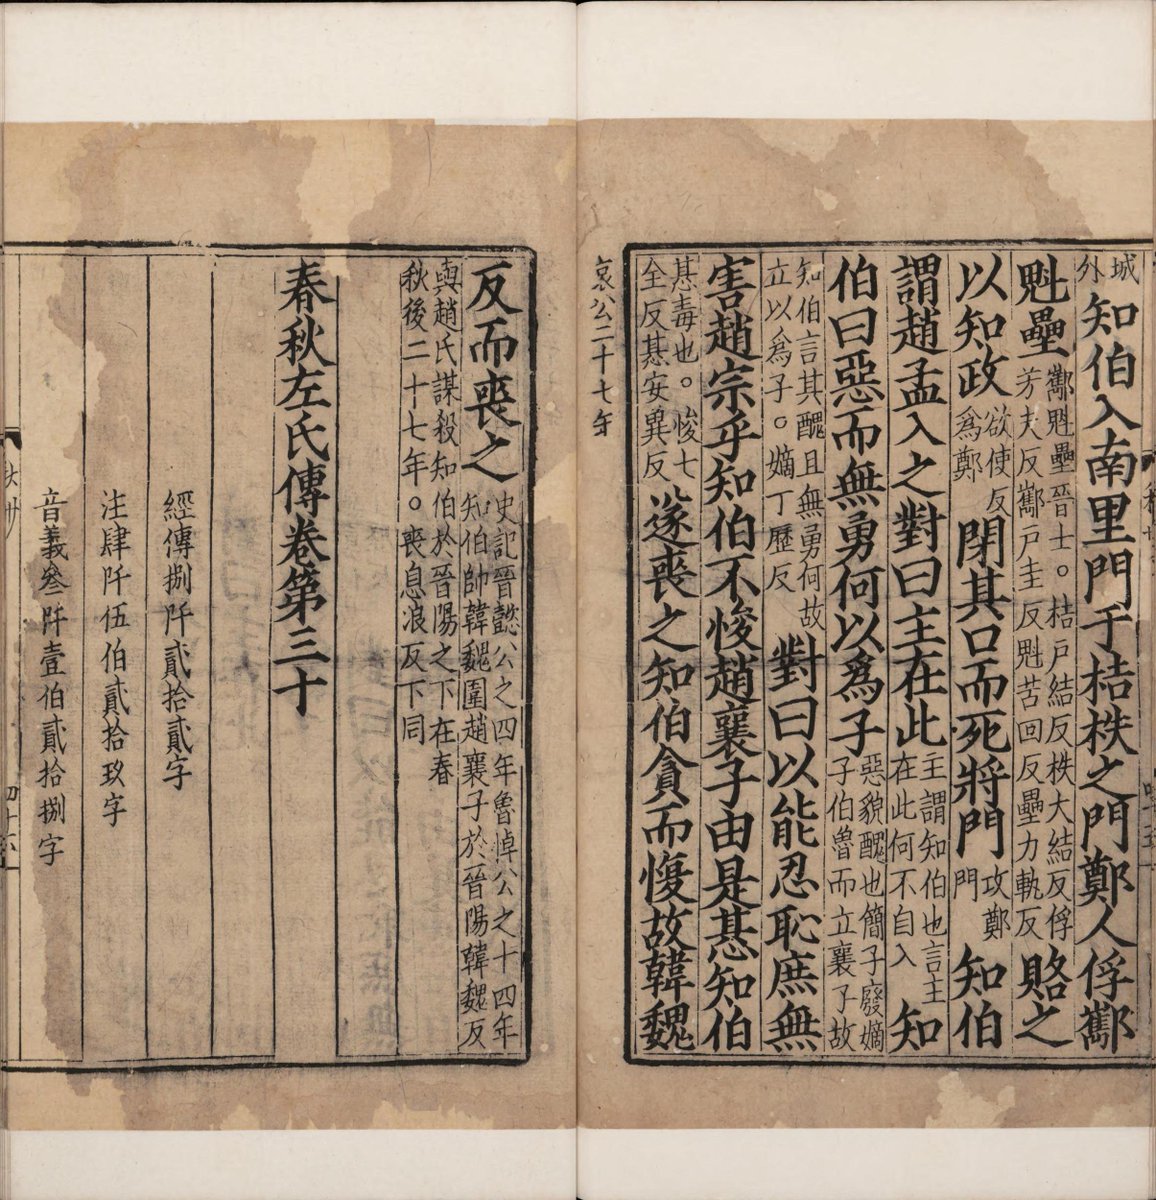 城外知伯入南里門于桔柣之門鄭人俘酅
魁壘酅魁壘晉士。桔戶結反柣大結反俘芳夫反酅戶圭反魁苦回反壘力軌反賂之
以知政欲使反爲鄭閉其口而死將門攻鄭門知伯
謂趙孟入之對曰主在此主謂知伯也言主在此何不自入知
伯曰惡而無勇何以爲子惡貌醜也簡子廢嫡子伯魯而立襄子故
知伯言其醜且無勇何故立以爲子。嫡丁歷反對曰以能忍恥庶無
害趙宗乎知伯不悛趙襄子由是惎知伯
惎毒也。悛七全反惎安異反遂喪之知伯貪而愎故韓魏
哀公二十七年
反而喪之史記晉懿公之四年魯悼公之十四年知伯帥韓魏圍趙襄子於晉陽韓魏反
與趙氏謀殺知伯於晉陽之下在春秋後二十七年。喪息浪反下同
春秋左氏傳卷第三十
經傳捌阡貳拾貳字
注肆阡伍伯貳拾玖字
音義叄阡壹伯貳拾捌字